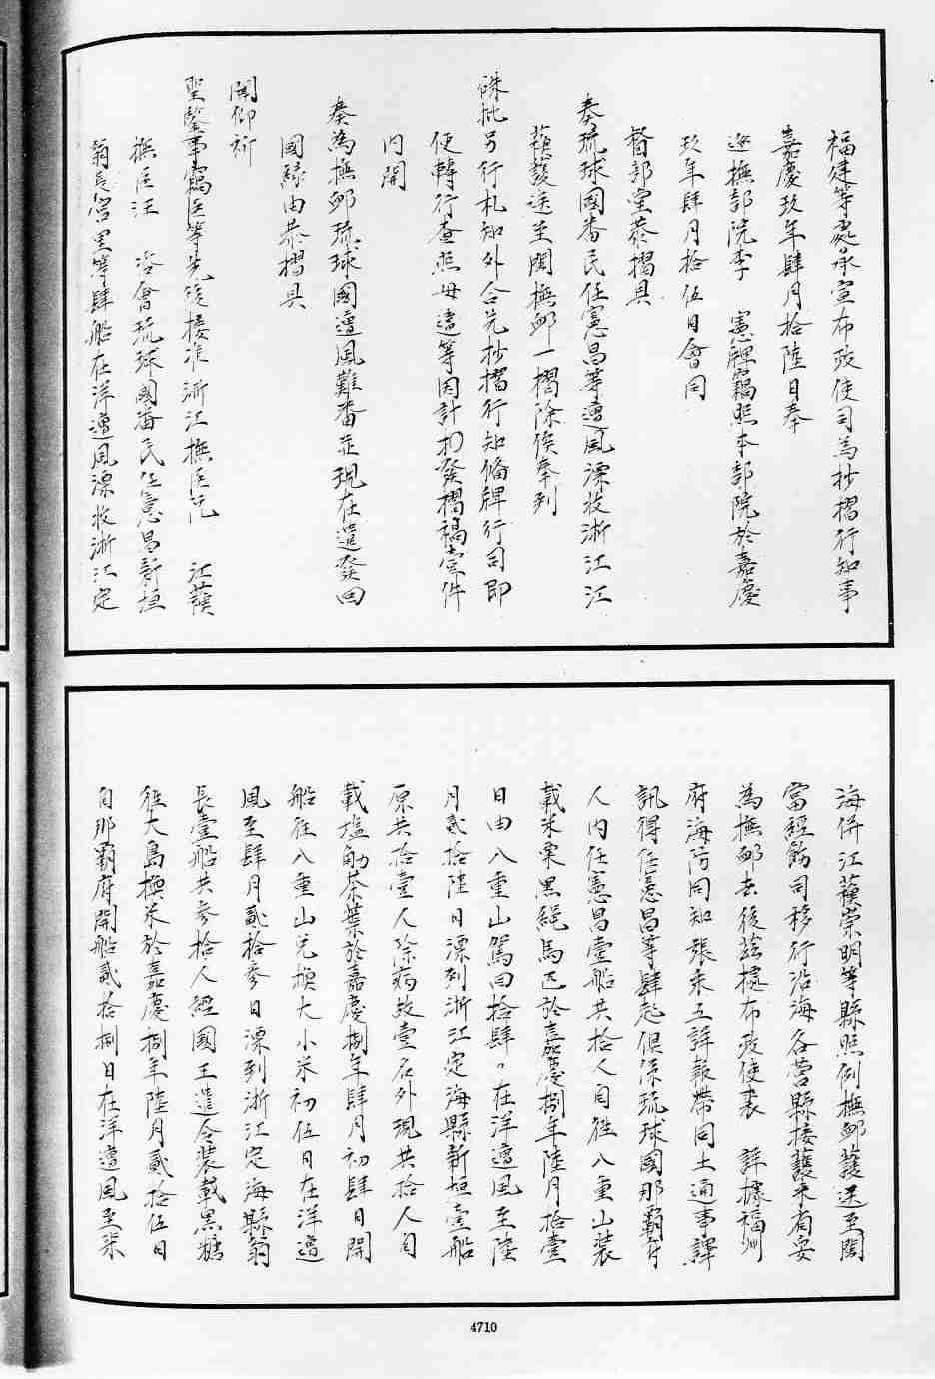 福建等處承宣布政使司為抄摺行知事
嘉慶玖年肆月拾陸日奉
巡撫部院李 憲牌竊照本部院於嘉慶
玖年肆月拾伍日會同
督部堂恭摺具
奏琉球國番民任憲昌等遭風漂收浙江江
蘓護送至閩撫卹一摺除俟奉到
硃批另行札知外合先抄摺行知備牌行司即
便轉行查照毋違等因計抄發摺稿壹件
內開
奏為撫卹琉球國遭風難番並現在遣發回
國緣由恭摺具
聞仰祈
聖鑒事竊臣等先後接准浙江撫臣阮 江蘓
撫臣汪 咨會琉球國番民任憲昌新垣
翁長宮里等肆船在洋遭風漂收浙江定
海併江蘓崇明等縣照例撫卹護送至閩
當經飭司移行沿海各營縣接護來省妥
為撫卹去後茲據布政使裘 詳據福州
府海防同知張采五詳報帶同土通事譯
訊得任憲昌等肆起俱係琉球國那霸府
人內任憲昌壹船共拾人自往八重山裝
載米粟黑繩馬疋於嘉慶捌年陸月拾壹
日由八重山駕回拾肆。在洋遭風至陸
月貳拾陸日漂到浙江定海縣新垣壹船
原共拾壹人除病故壹名外現共拾人自
載塩觔茶葉於嘉慶捌年肆月初肆日開
船往八重山兌換大小米初伍日在洋遭
風至肆月貳拾參日漂到浙江定海縣翁
長壹船共參拾人經國王遣令裝載黑糖
往大島換米於嘉慶捌年陸月貳拾伍日
自那霸府開船貳拾捌日在洋遭風至柒
4710